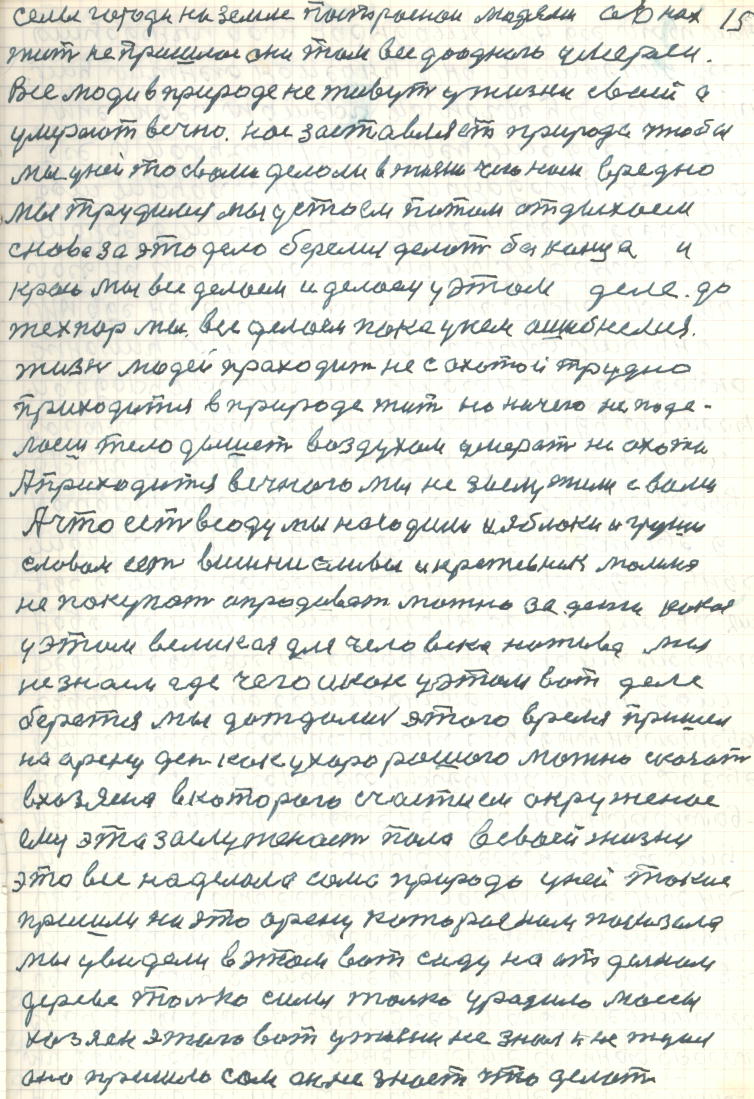 семи города на земле построеном модели а в них 15
жит не пришлос они там все до одного умерли.
Все люди в природе не живут у жизни своей а
умирают вечно. нас заставляет природа чтобы
мы у ней это свами делали в жизни чего нам вредно
мы трудимся мы устаем потом отдыхаем
снова за это дело беремся делат без конца и
края мы все делаем и делаем у этом деле. до
тех пор мы. все делаем пока у нем ошибнемся.
жизн людей проходит не с охотой трудно
приходится в природе жит но ничего не поде-
лаеш тело дышет воздухом умерат не охота
А приходится вечного мы не заслужили с вами
А что ест в саду мы находили и яблоки и груши
словом ест вишни сливы и крыжвник можно
не покупат а продават можно за денги какая
у этом великая для человека нажива мы
не знаем где чего и как у этом вот деле
берется мы дождалис этого время пришел
на арену ден как у хоро рошого можно сказат
в хозяена в которого счастием окруженое
ему эта заслуженаст пала в своей жизни
это все наделала сама природа у ней такие
пришли на это арену которое нам показала
мы увидели в этом вот саду на отделном
дереве толко сими толко уродило массы
хозяен этого вот у жизни не знал и не ждал
оно пришло сам он не знает что делат